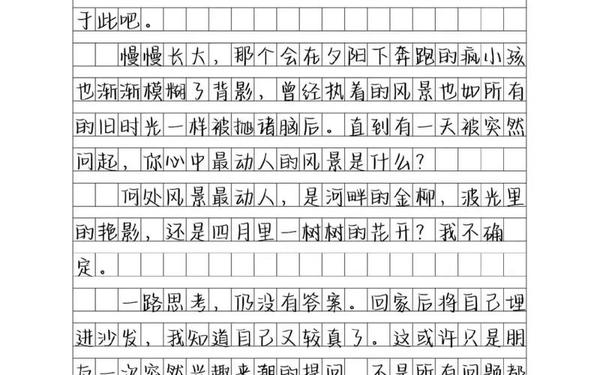 于此吧。
慢慢长大，那个会在夕阳下奔跑的疯小孩
也渐渐模糊了背影，曾经执着的风景也如所有
的旧时光一样被抛诸脑后。直到有一天被突然
问起，你心中最动人的风景是什么？
何处风景最动人，是河畔的金柳，波光里
的艳影，还是四月里一树树的花开？我不确
定。
一路思考，仍没有答案。回家后将自己埋
进沙发，我知道自己又较真了。这或许只是朋
友一次突然兴趣来潮的提问，不是所有问题都